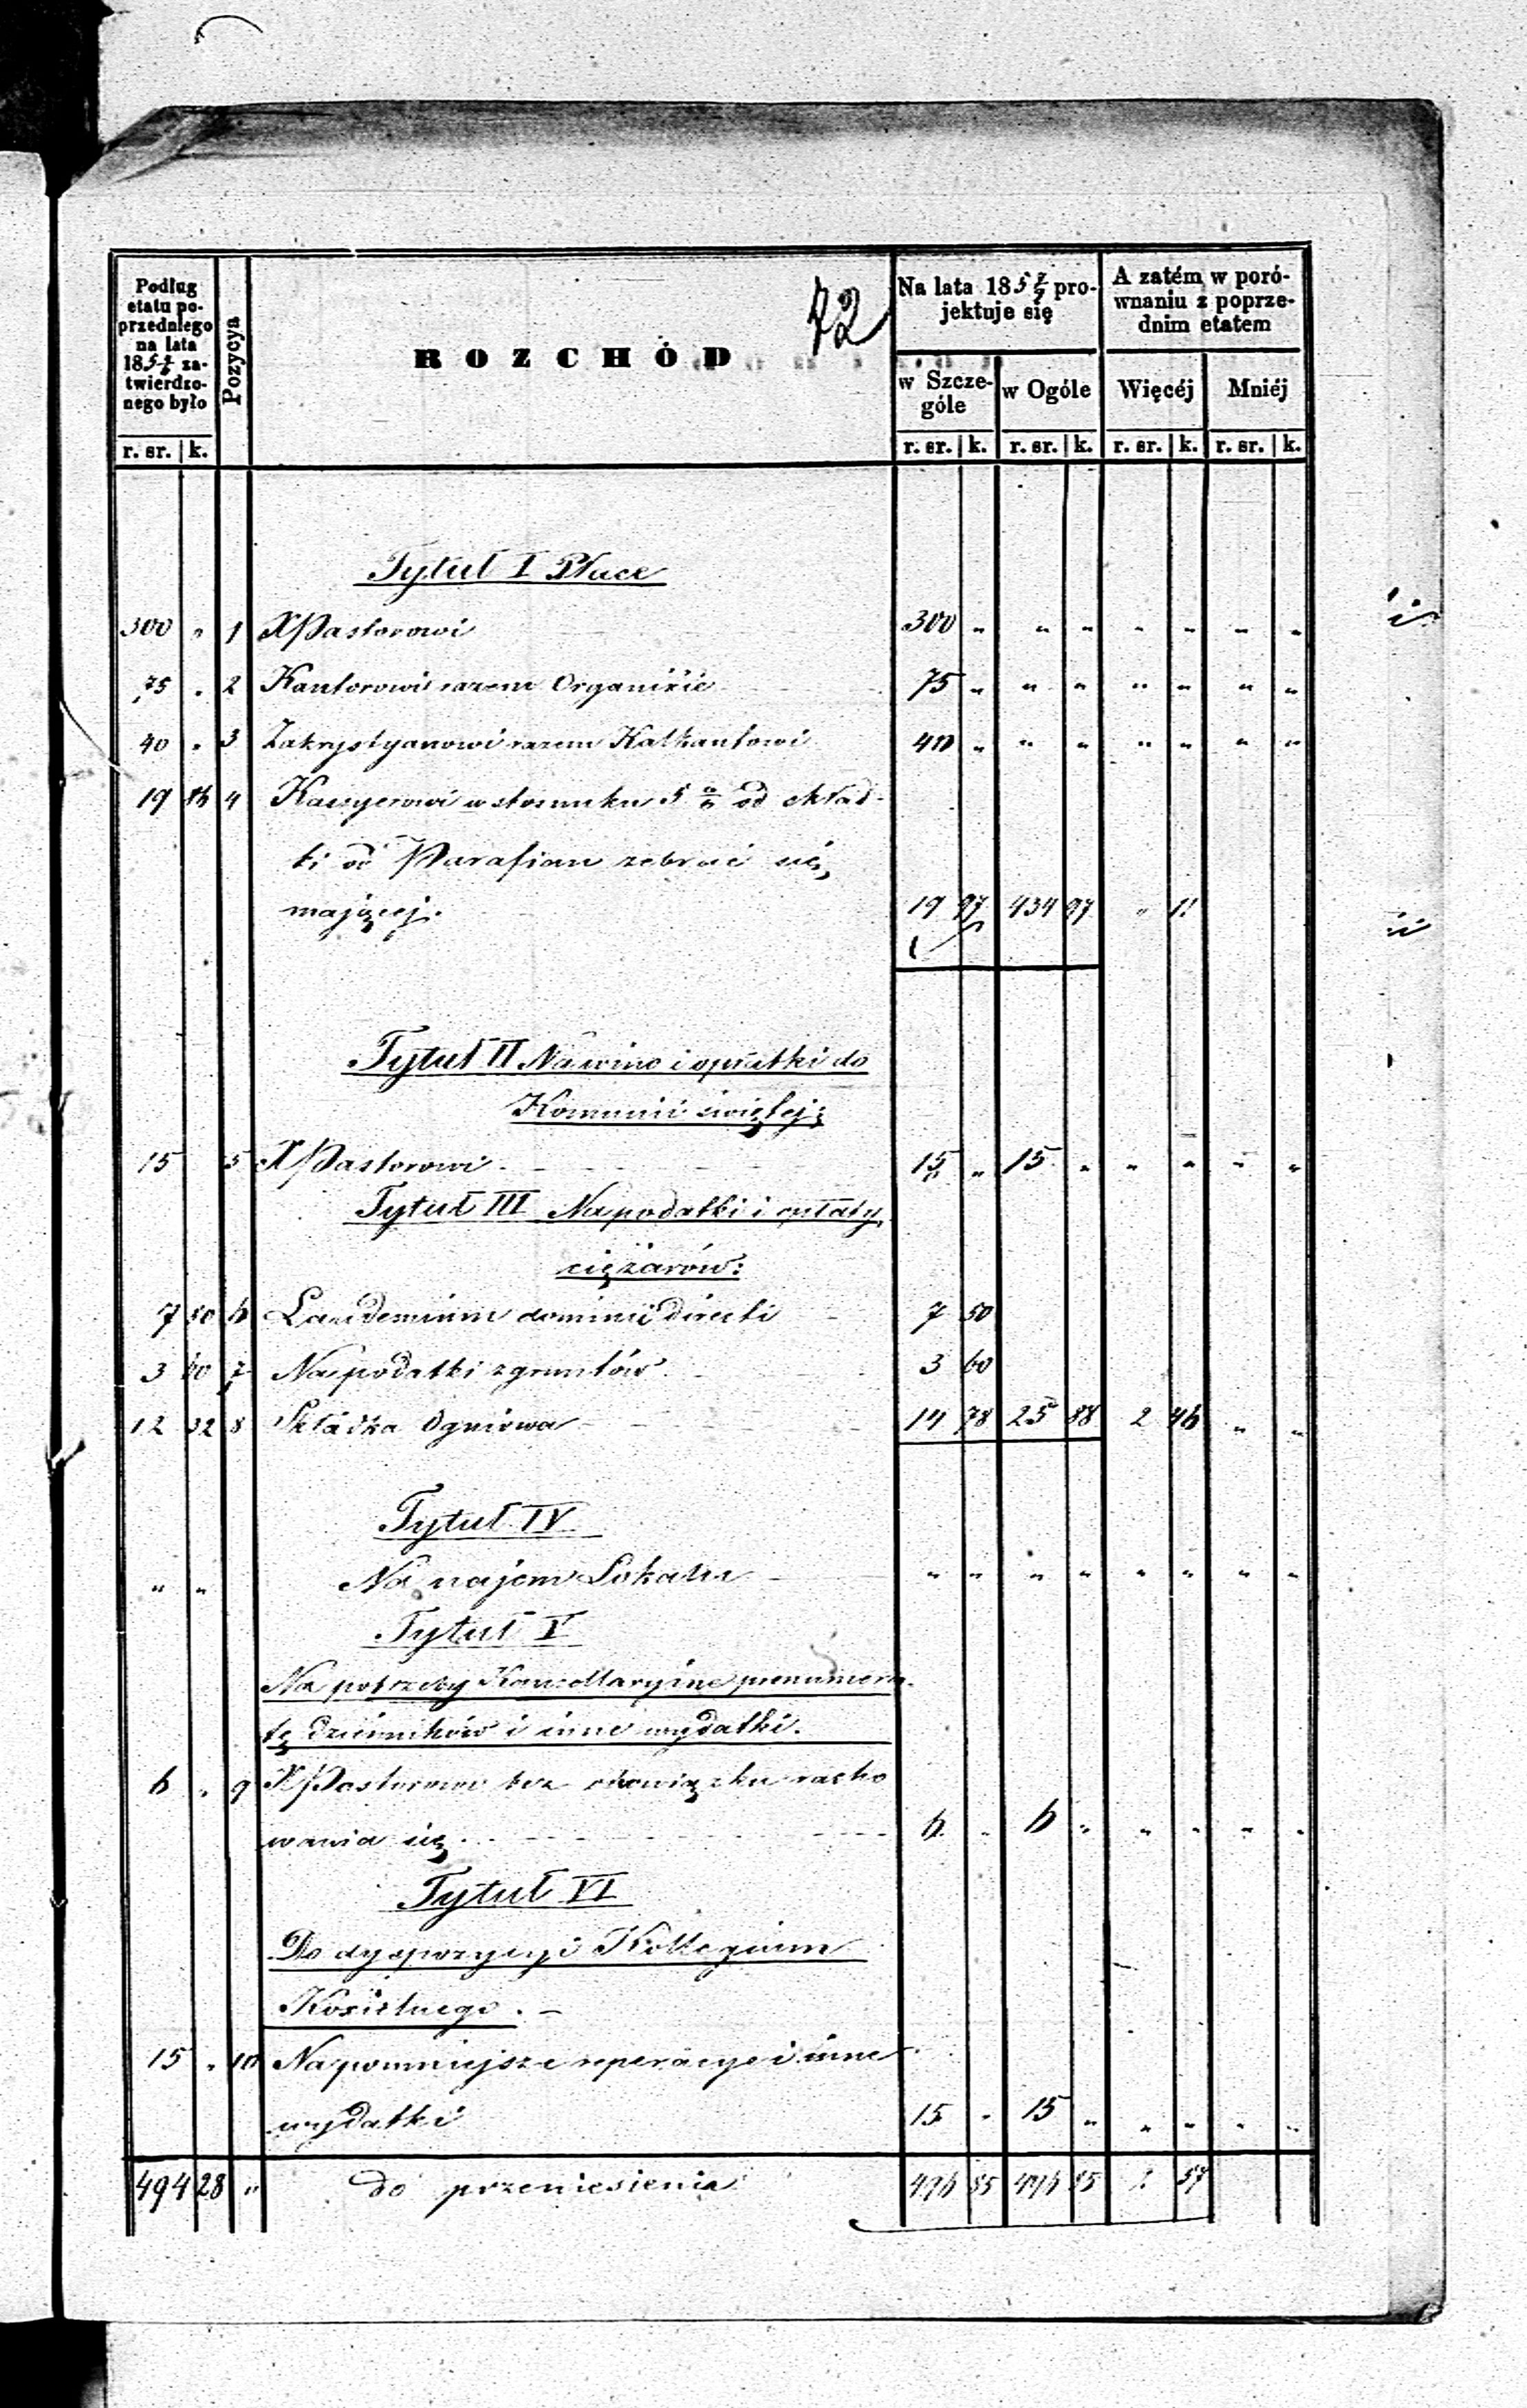 72
Podług etatu poprzedniego na lata 185 zatwierdzonego było
Pozycya
ROZCHÓD
Na lata 185 7/9 projektuje się
A zatém w porównaniu z poprzednim etatem
w Szczególe
w Ogóle
Więcéj
Mniéj
r. sr. k. r. sr. k. r. sr. k. r. sr. k. r. sr. k.
Tytuł I Płace
300 " 1 X Pastorowi 300 " " " " " " "
75 " 2 Kantorowi razem Organiście 75 " " " " " " "
40 " 3 Zakrystyanowi razem Kalkantowi 40 " " " " " " "
19 86 4 Kassyerowi w stosunku 5 % od skład-
ki od Parafian zebrać się
mającej. 19 97 434 97 " 11
Tytuł II Na wino i opłatki do
Komunii świętej:
15 5 X Pastorowi 15 " 15 " " " " "
Tytuł III Na podatki i opłaty
ciężarów:
7 50 6 Laudemium dominii directi 7 50
3 60 7 Na podatki z gruntów 3 60
12 32 8 Składka Ogniowa 14 78 25 88 2 46 " "
Tytuł IV
" " Na najem Lokalu " " " " " " " "
Tytuł V
Na potrzeby Kancellaryine prenumera-
tę dzienników i inne wydatki.
6 " 9 X Pastorowi bez obowiązku racho
wania się 6 " 6 " " " " "
Tytuł VI
Do dyspozycyi Kollegium
Kościelnego.
15 " 10 Na pomniejsze reperacye i inne
wydatki 15 " 15 " " " " "
494 28 " do przeniesienia 496 85 496 85 2 57